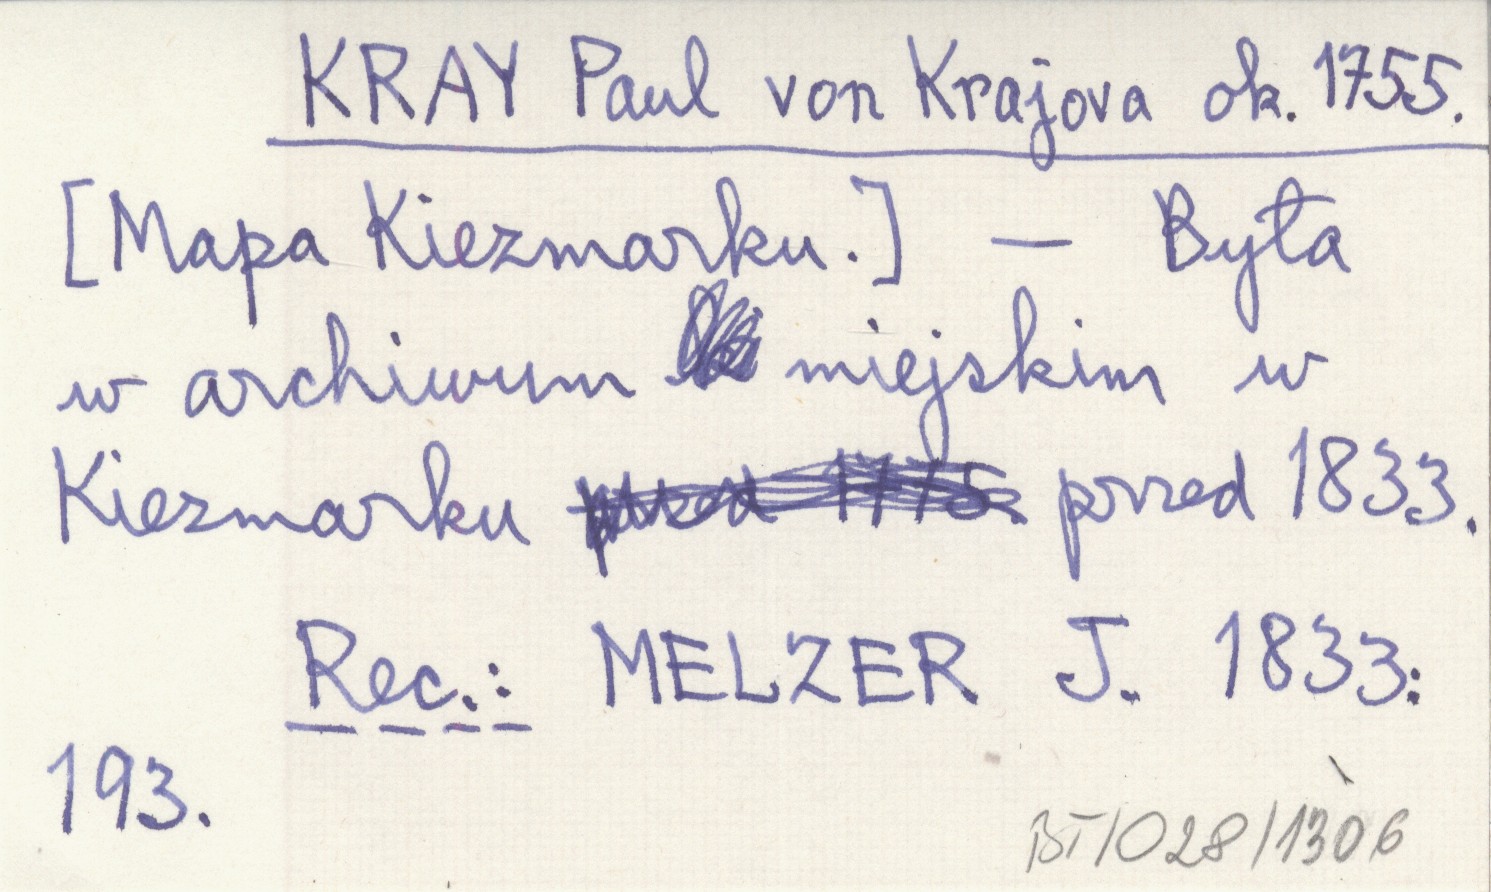 KRAY Paul von Krajova ok. 1755.
[Mapa Kiezmarku.] — Była
w archiwum miejskim w
Kiezmarku przed 1833.
Rec.: MELZER J. 1833:
193.
BT/028/1306